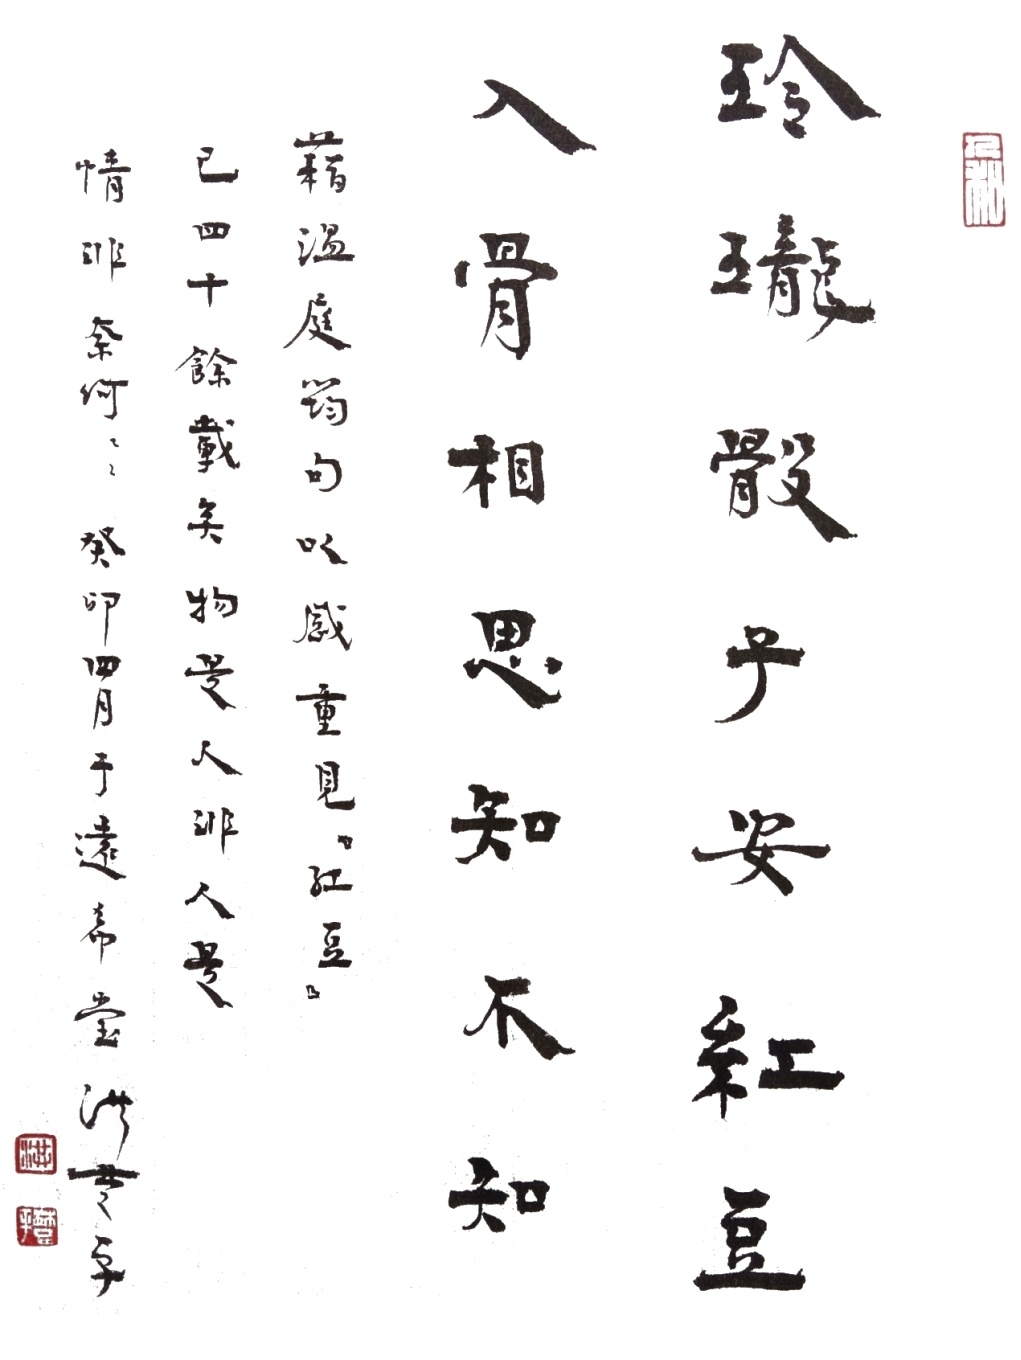 玲瓏骰子安紅豆
入骨相思知不知
藉溫庭筠句以感重見『紅豆』
已四十餘載矣物是人非人是
情非奈何奈何癸卯四月于遠希堂洪